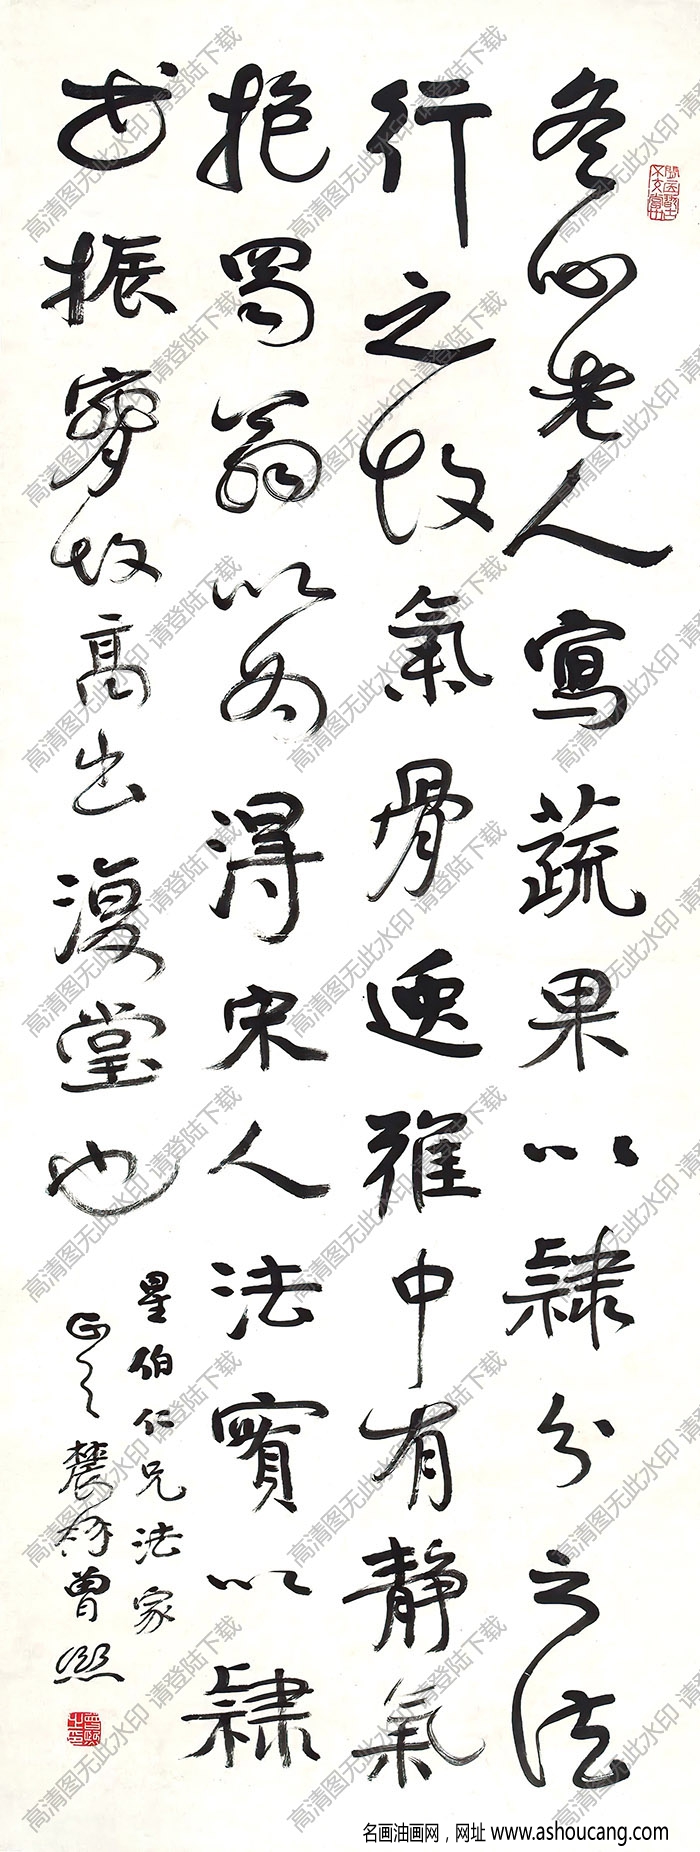 冬心老人寫蔬果以隸分之法
行之故氣骨遒雅中有靜氣
抱蜀翁以為得宋人法實以隸
書振奇故高出復堂也
星伯仁兄法家
正之 農髯曾熙
名画油画网，网址 www.ashoucang.com
高清图无此水印 请登陆下载